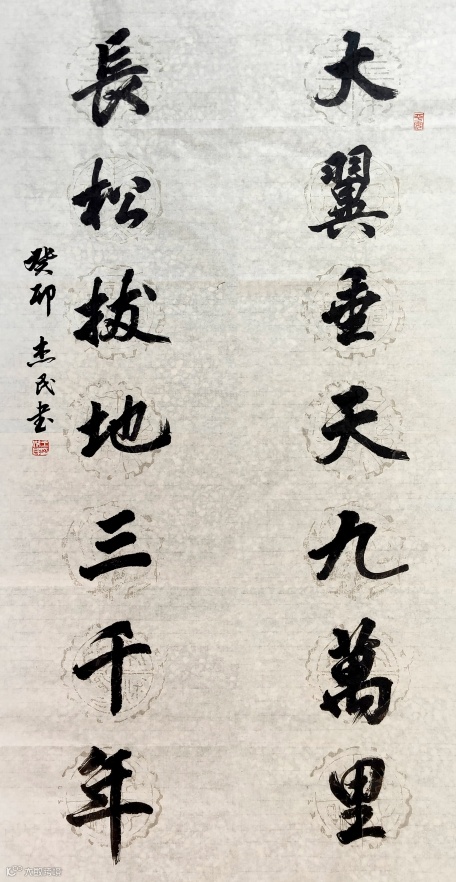 大翼垂天九萬里
長松拔地三千年
癸卯 杰民書